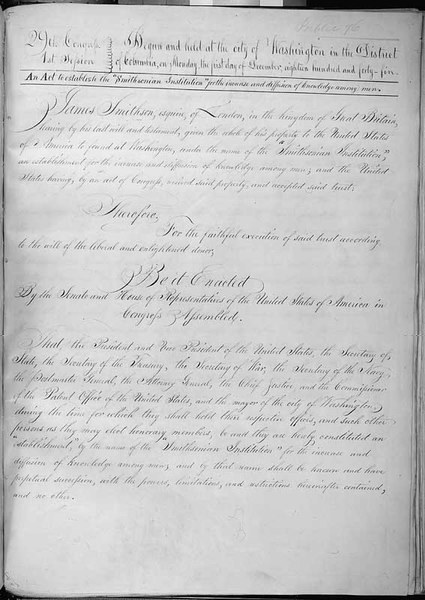 29th Congress
1st Session
Begun and held at the city of Washington in the District
of Columbia, on Monday the first day of December, eighteen hundred and forty-five.
An Act to establish the "Smithsonian Institution," for the increase and diffusion of knowledge among men.
James Smithson, esquire, of London, in the kingdom of Great Britain,
having by his last will and testament, given the whole of his property to the United States
of America to found at Washington, under the name of the "Smithsonian Institution,"
an establishment for the increase and diffusion of knowledge among men; and the United
States having, by an act of Congress, received said property, and accepted said trust;
Therefore,
For the faithful execution of said trust according
to the will of the liberal and enlightened donor,
Be it Enacted
By the Senate and House of Representatives of the United States of America in
Congress Assembled.
That the President and Vice President of the United States, the Secretary of
State, the Secretary of the Treasury, the Secretary of War, the Secretary of the Navy,
the Postmaster General, the Attorney General, the Chief Justice, and the Commissioner
of the Patent Office of the United States, and the mayor of the city of Washington,
during the time for which they shall hold their respective offices, and such other
persons as they may elect honorary members, be and they are hereby constituted an
"establishment," by the name of the "Smithsonian Institution" for the increase and
diffusion of knowledge among men; and by that name shall be known and have
perpetual succession, with the powers, limitations, and restrictions hereinafter contained,
and no other.